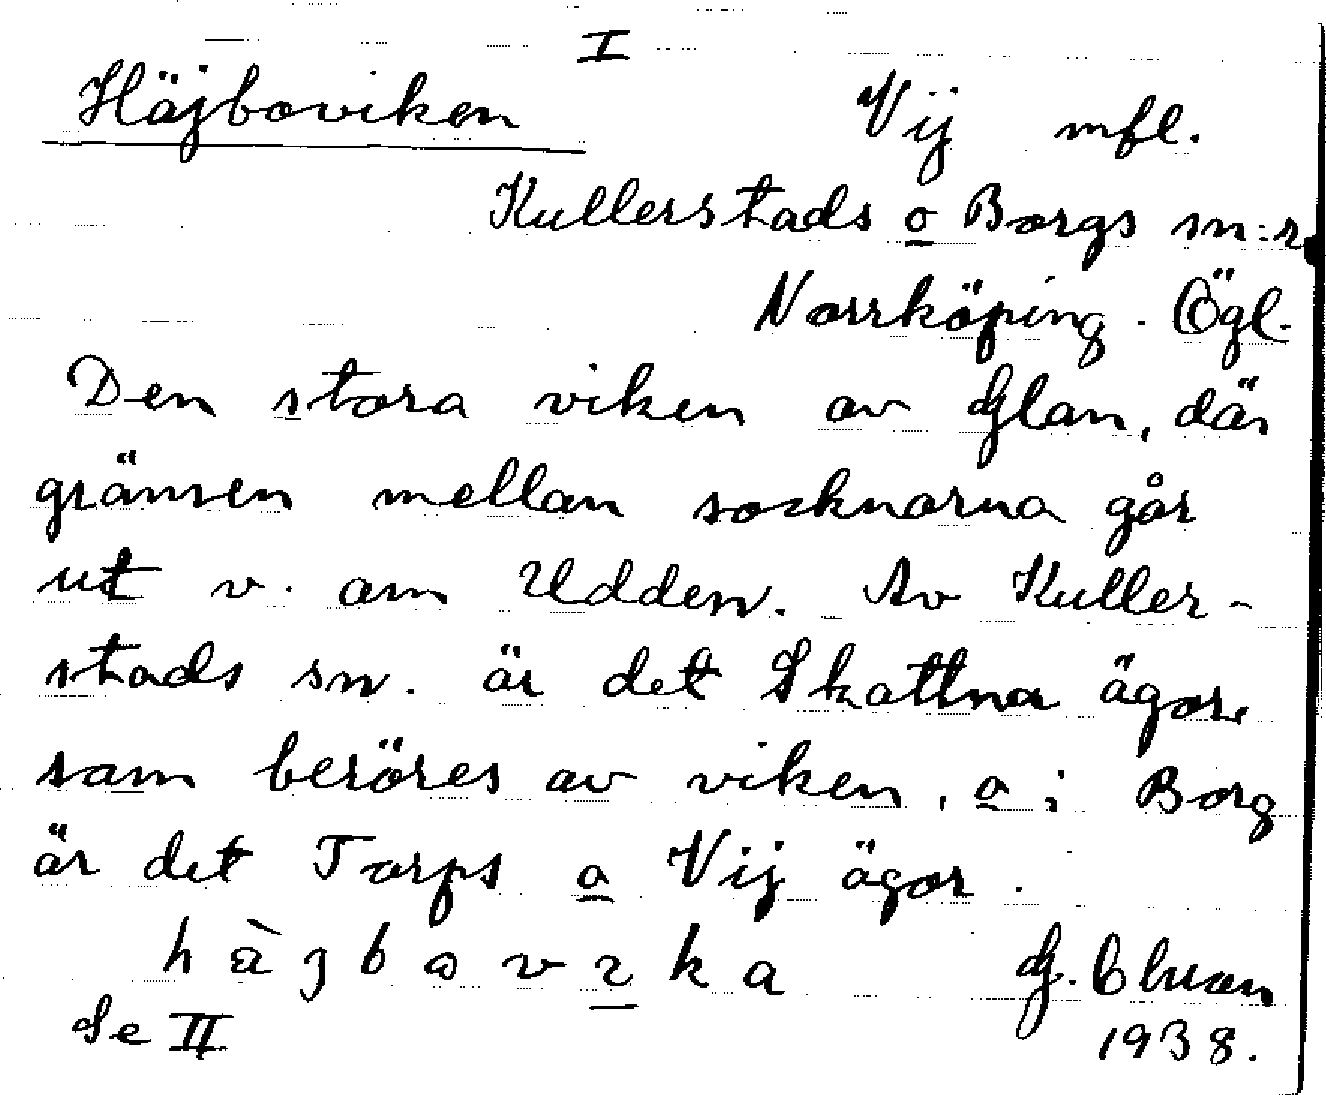 I
Häjboviken Vij mfl.
Kullerstads o Borgs sn:r
Norrköping. Ögl.
Den stora viken av Glan, där
gränsen mellan socknarna går
ut v. om Udden. Av Kuller-
stads sn. är det Skattna ägor,
som beröres av viken, o i Borg
är det Torps o Vij ägor.
h à j b o v ı k a G.
Se II 1938.